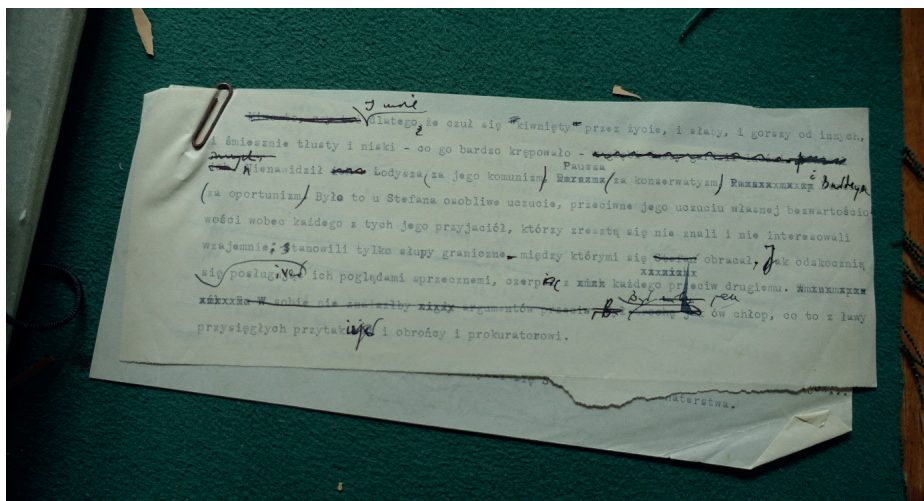 I może
dlatego, że czuł się "kiwnięty" przez życie, i słaby, i gorszy od innych,
i śmiesznie tłusty i niski - co go bardzo krępowało -
Nienawidził Łodysza (za jego komunizm) Pausza (za konserwatyzm) i Badteya
(za oportunizm) Było to u Stefana osobliwe uczucie, przeciwne jego uczuciu własnej bezwartościo
wości wobec każdego z tych jego przyjaciół, którzy zresztą się nie znali i nie interesowali
wzajemnie; stanowili tylko słupy graniczne - między którymi się obracał. Jak odskocznią
się posługiwał ich poglądami sprzecznemi, czerpiąc z każdego przeciw drugiemu.
W sobie nie znalazłby argumentów Był ów chłop, co to z ławy
przysięgłych przytakuje i obrońcy i prokuratorowi.
się S
materstwa.